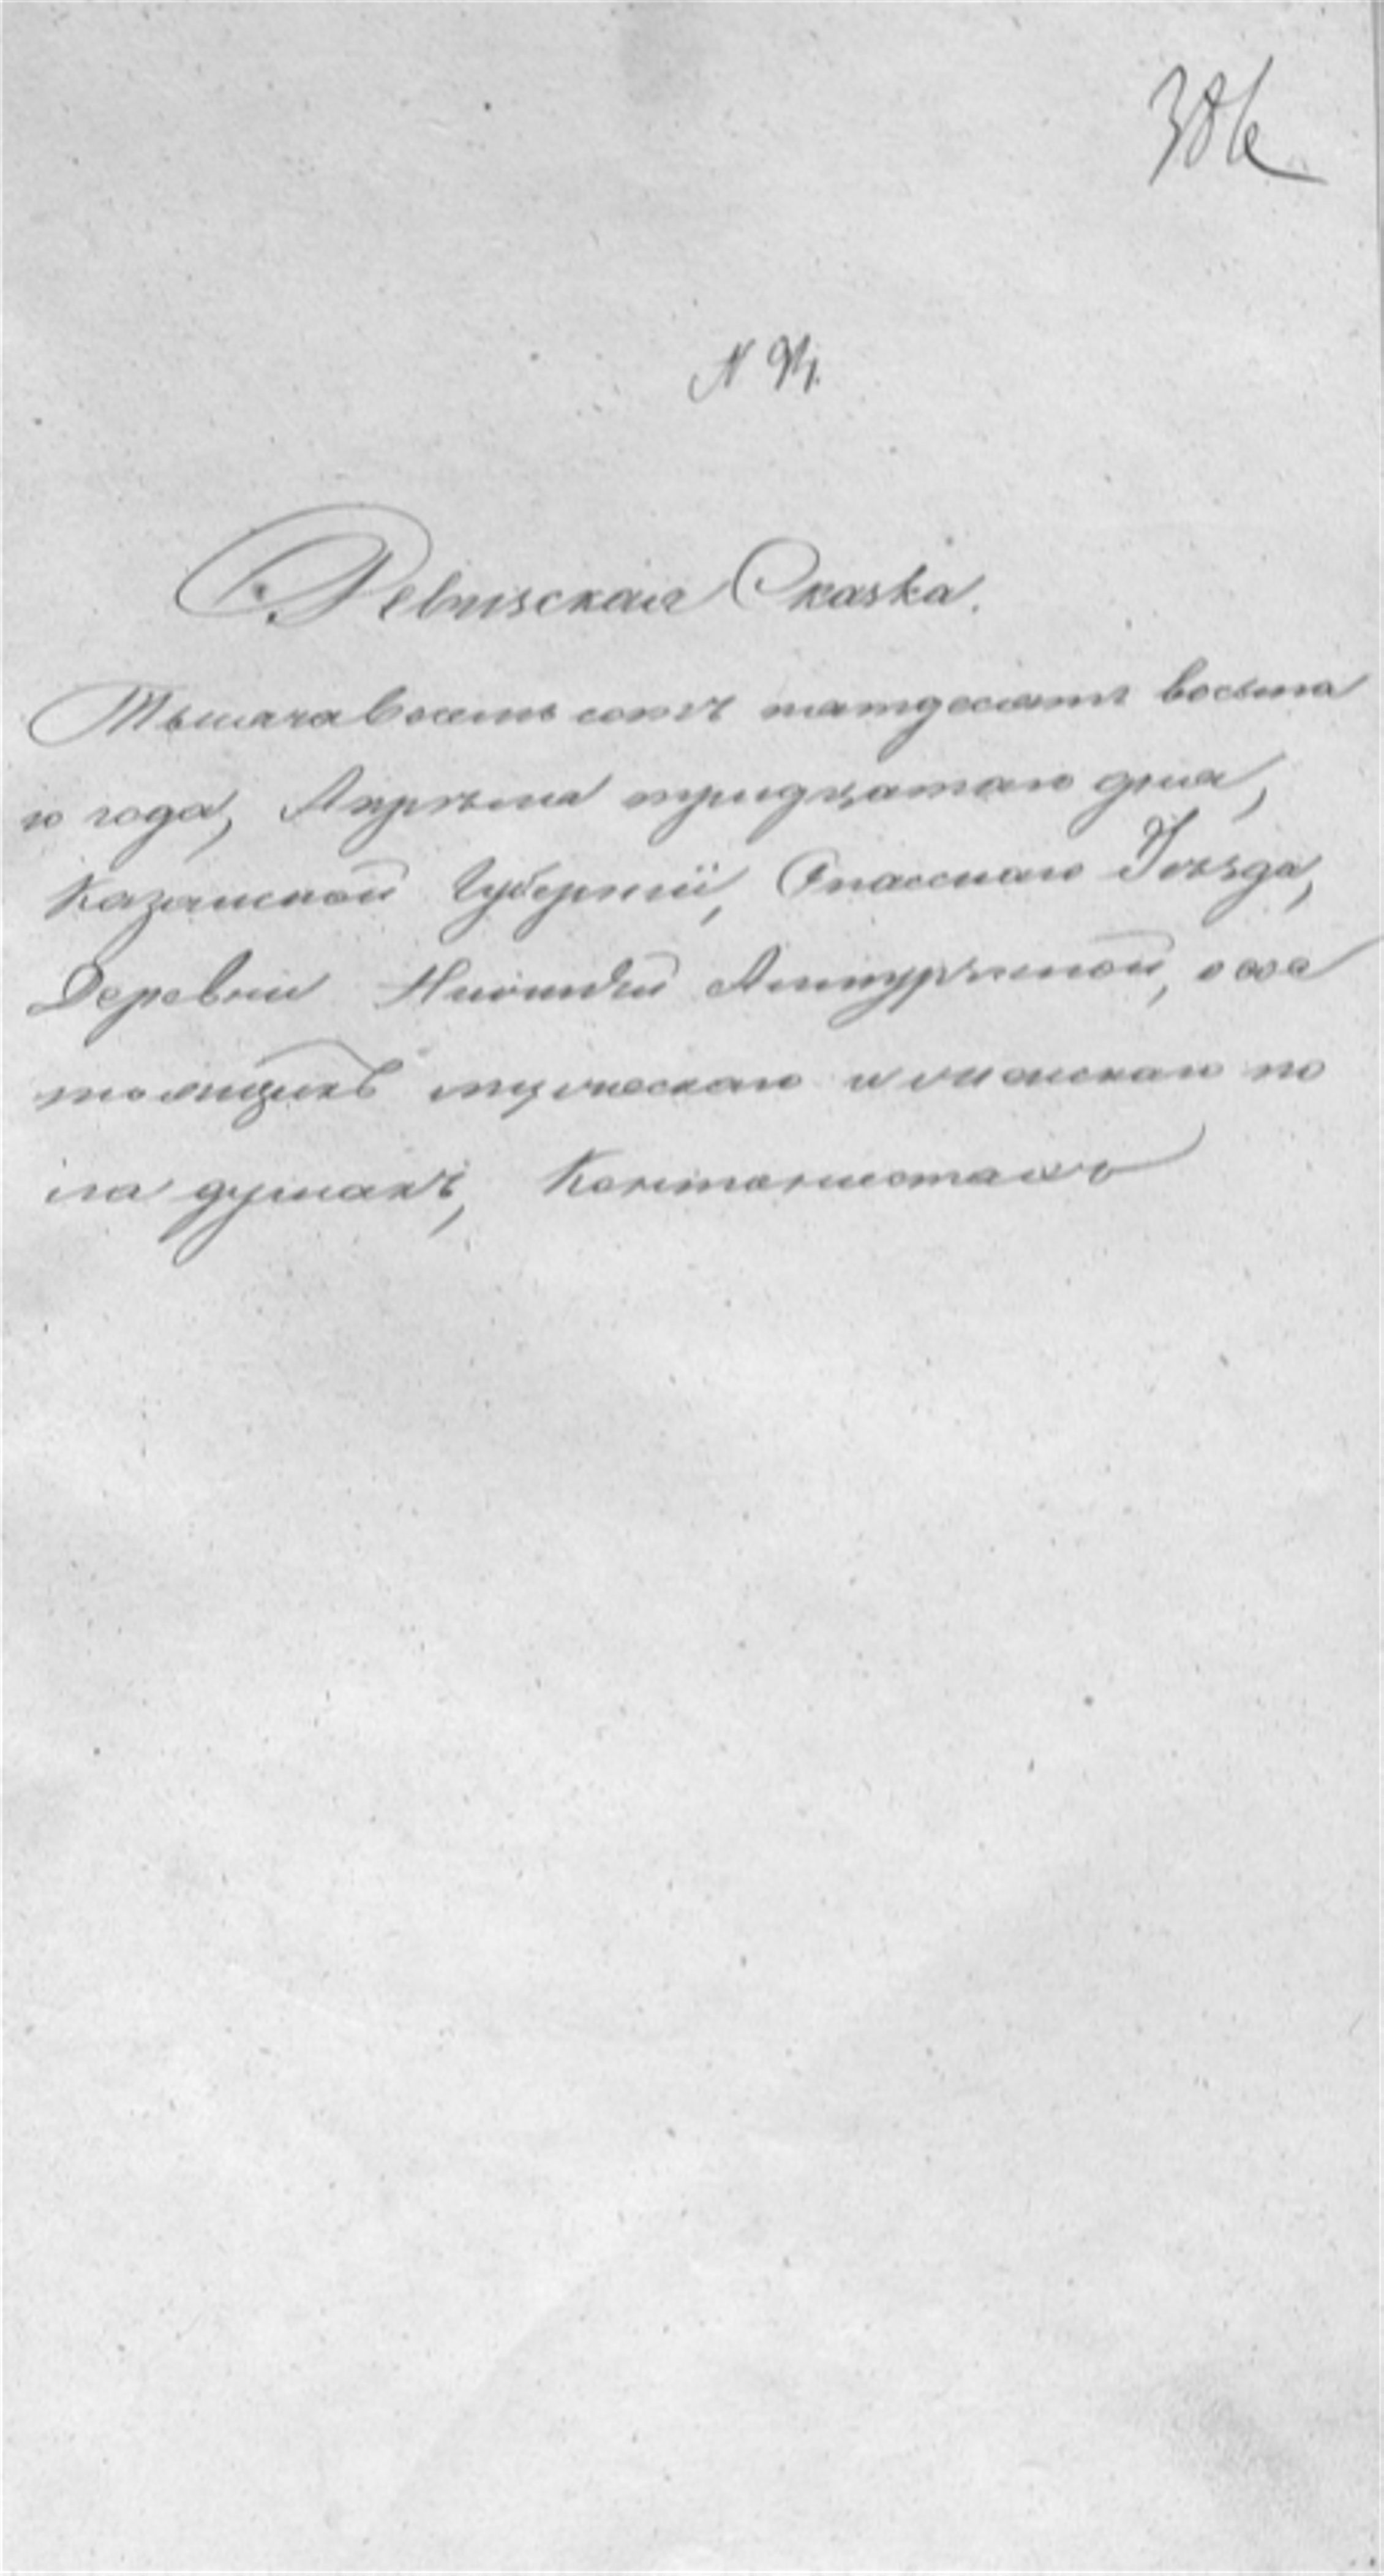 386
N 94.
Ревизская Сказка.
Тысяча восемь сотъ пятдесятъ восьма
го года, Апрѣля тридцатаго дня,
Казанской Губерніи, Спасскаго Уѣзда,
Деревни Нижней о сос
тоящихъ мужескаго и женскаго по
ла душахъ, Кантонистахъ